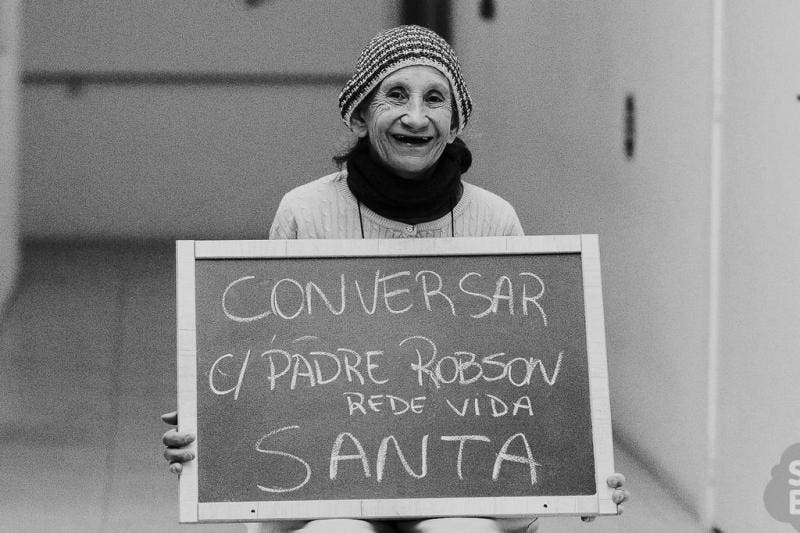 CONVERSAR
C/ PADRE ROBSON
REDE VIDA
SANTA